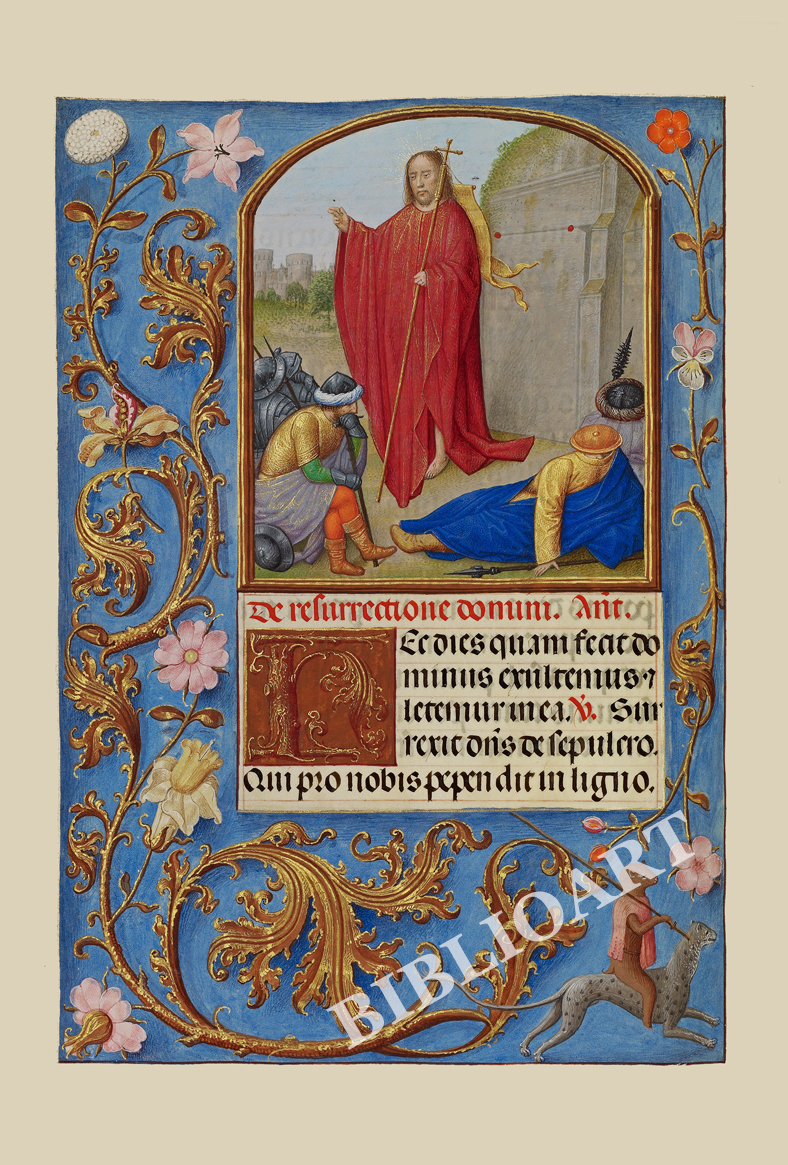 De resurrectione domini. Añt.
Hec dies quam fecit do
minus exultemus ⁊
letemur in ea. ℣. Sur
rexit dñs de sepulcro.
Qui pro nobis pependit in ligno.
BIBLIOART